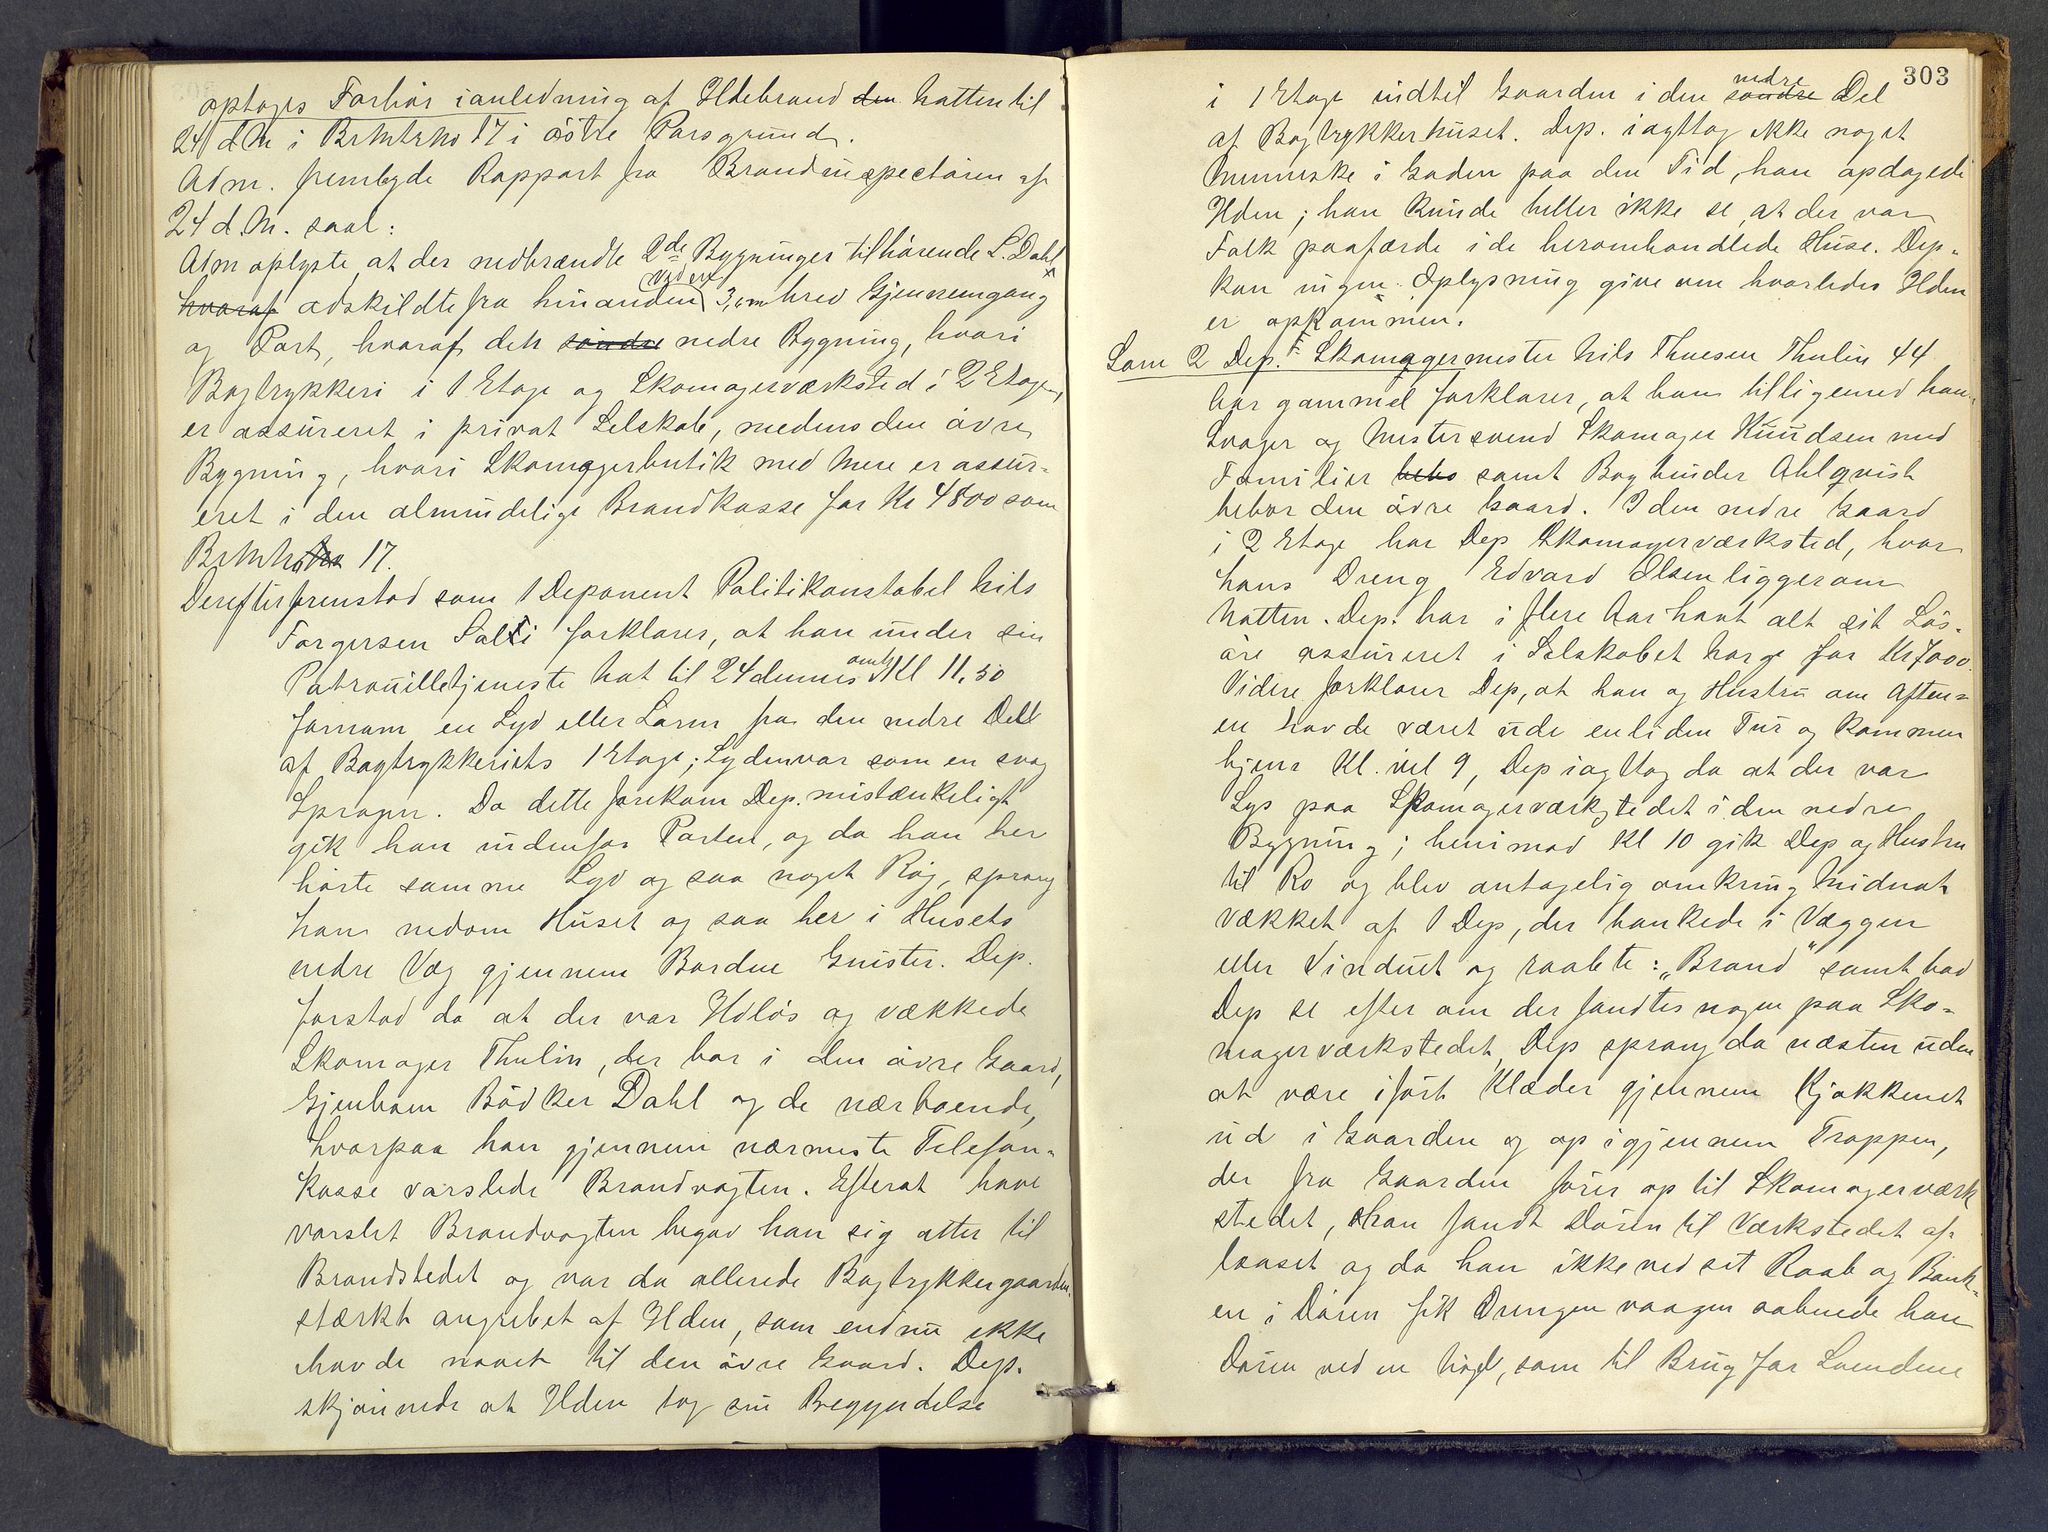 optages Forhør i anledning af Ildebrand den Natten til
24 d M i BrMtrNo 17 i østre Porsgrund.
Adm. frembyde Rapport fra Brandinspectøren af
24 d. M. saal:
Adm oplyste at der nedbrændte 2de Bygninger tilhørende L. Dahl
hvoraf adskildte fra hinanden ved en 3,0 m bred Gjennemgang
og Port, hvoraf den søndre nedre Bygning, hvori
Bogtrykkeri i 1 Etage og Skomagerværksted i 2 Etage,
er assureret i privat Selskab, medens den øvre
Bygning, hvori Skomagerbutik med Mere er assur-
eret i den almindelige Brandkasse for Kr 4800 som
BrMtrNo 17.
Derefter fremstod som 1 Deponent Politikonstabel Nils
Torgersen Salti forklarer, at han under sin
Patrouilletjeneste Nat til 24 dennes omtr Kl 11,50
fornam en Lyd eller Larm fra den nedre Del
af Bogtrykkeriets 1 Etage; Lyden var som en svag
Spragen. Da dette forekom Dep. mistænkeligt
gik han indenfor Porten, og da han her
hørte samme Lyd og saa noget Røg, sprang
han nedom Huset og saa her i Husets
nedre Væg gjennem Bordene Gnister. Dep.
forstod da at der var Ildløs og vækkede
Skomager Thulin, der bor i den øvre Gaard,
Gjenboen Bødker Dahl og de nærboende,
hvorpaa han gjennem nærmeste Telefon-
kasse varslede Brandvagten. Efterat have
varslet Brandvagten begav han sig atter til
Brandstedet og var da allerede Bogtrykkergaarden
stærkt angrebet af Ilden, som endnu ikke
havde naaet til den øvre Gaard. Dep.
skjønnede at Ilden tog sin Begyndelse
303
i 1 Etage indtil Gaarden i den søndre nedre Del
af Bogtrykkerhuset. Dep. iagttog ikke noget
Menneske i Gaden paa den Tid, han opdagede
Ilden; han kunde heller ikke se at der var
Folk paafærde i de heromhandlede Huse. Dep.
kan ingen Oplysning give om hvorledes Ilden
er opkommen.
Som 2 Dep. Skomagermester Nils Thuesen Thulin 44
Aar gammel forklarer, at han tilligemed hans
Svoger og Mestersvend Skomager Knudsen med
Familier bebo samt Bogbinder Ahlqvist
bebor den øvre Gaard. I den nedre Gaard
i 2 Etage har Dep Skomagerværksted, hvor
hans Dreng Edvard Olsen ligger om
Natten. Dep. har i flere Aar havt alt sit Løs-
øre assureret i Selskabet Norge for Kr 7000.
Videre forklarer Dep, at han og Hustru om Aften-
en havde været ude en liden Tur og kommen
hjem Kl. vel 9, Dep iagttog da at der var
Lys paa Skomagerværkstedet i den nedre
Bygning; henimod Kl 10 gik Dep og Hustru
til Ro og blev antagelig omkring Midnat
vækket af 1 Dep, der bankede i Væggen
eller Vinduet og raabte: „Brand" samt bad
Dep se efter om der fandtes nogen paa Sko-
magerværkstedet, Dep sprang da næsten uden
at være iført Klæder gjennem Kjøkkenet
ud i Gaarden og op igjennem Trappen,
der fra Gaarden fører op til Skomagerværk
stedet, han fandt Døren til Værkstedet af-
laaset og da han ikke ved sit Raab og Bank-
en i Døren fik Drengen vaagen aabnede han
Døren ved en Nøgel, som til Brug for Svendene